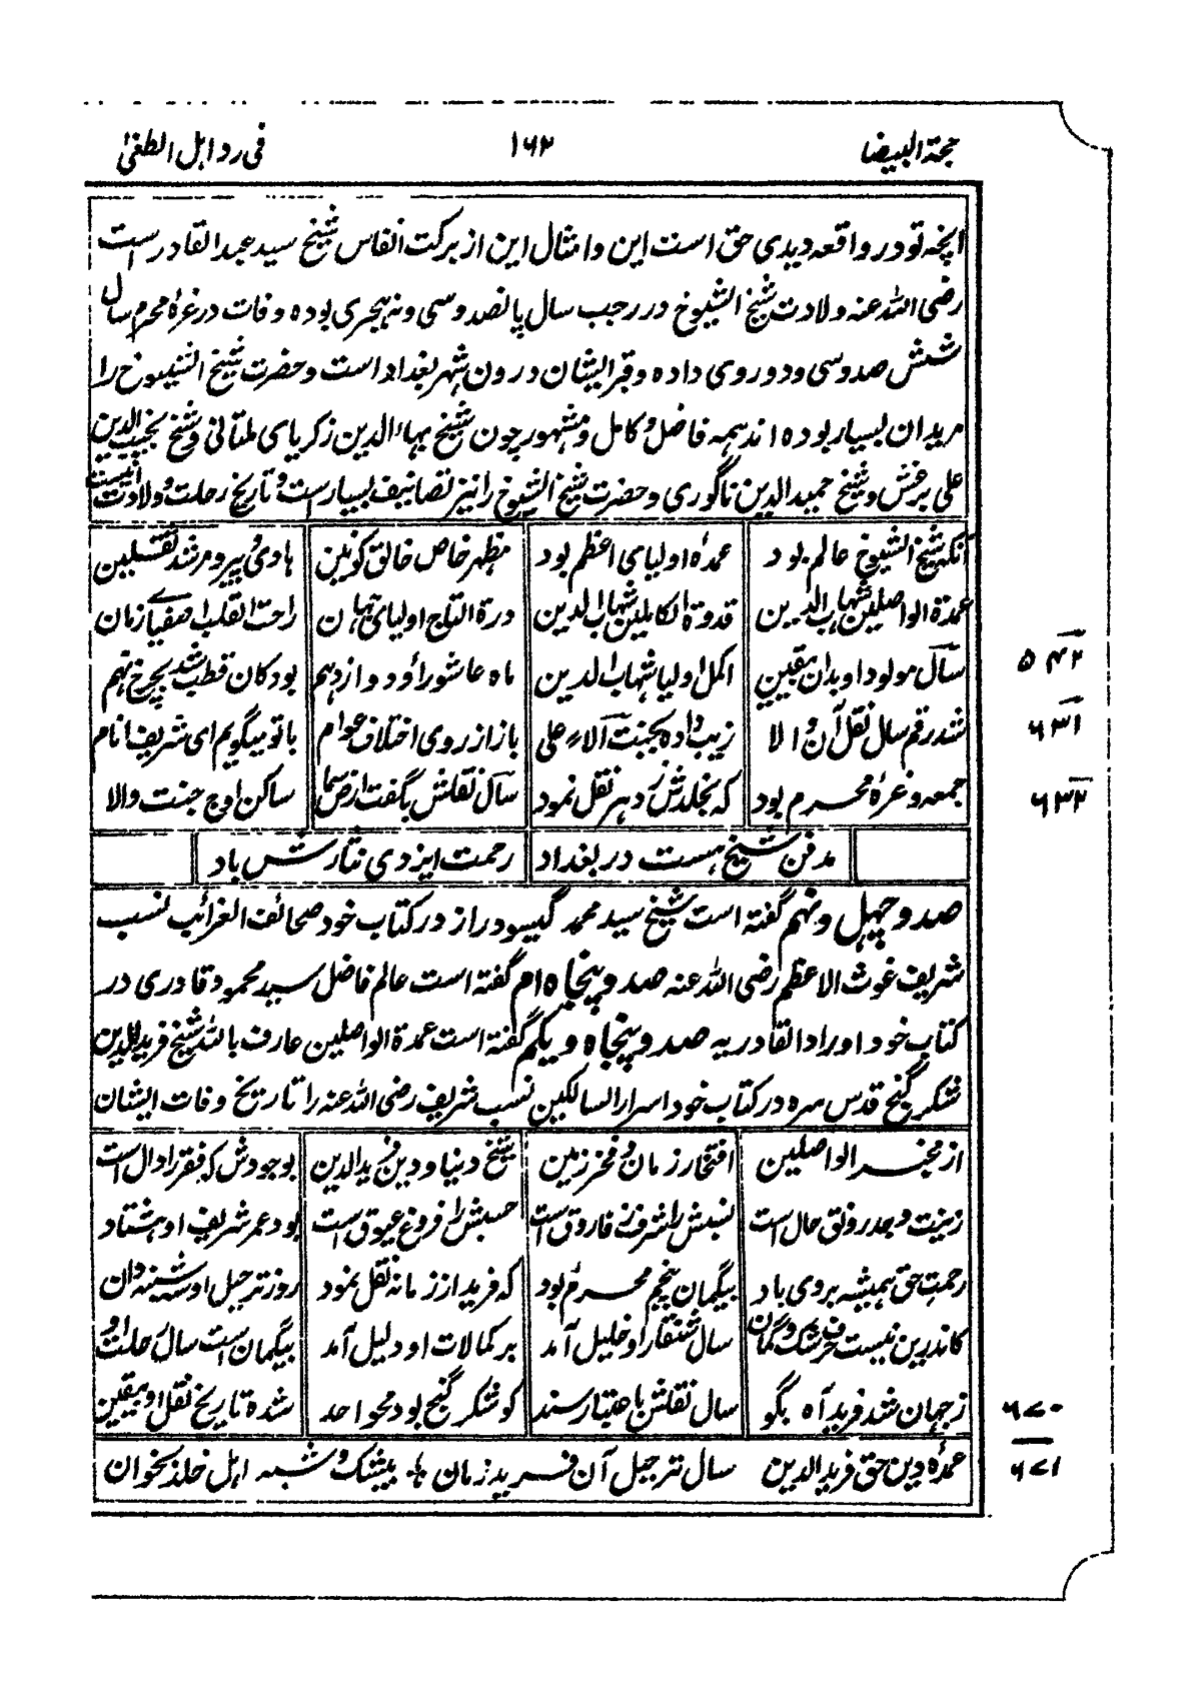 حجة البیضا ۱۶۲ فی رد اہل الطغیٰ
انچہ تو در واقعہ دیدی حق است این و امثال این از برکت انفاس شیخ سید عبد القادر است
رضی اللہ عنہ ولادت شیخ الشیوخ در رجب سال پانصد و سی و نہ ہجری بودہ وفات در غرۂ محرم سال
شش صد و سی و دو روی دادہ و قبر ایشان درون شہر بغداد است و حضرت شیخ الشیوخ را
مریدان بسیار بودہ اند ہمہ فاضل و کامل و مشہور چون شیخ بہاء الدین زکریای ملتانی و شیخ نجیب الدین
علی برغش و شیخ حمید الدین ناگوری و حضرت شیخ الشیوخ را نیز تصانیف بسیار است و تاریخ رحلت و ولادت اینست
آنکہ شیخ الشیوخ عالم بود عمدۂ اولیای اعظم بود مظہر خاص خالق کونین ہادی و پیر و مرشد ثقلین
عمدۃ الواصلین شہاب الدین قدوۃ الکاملین شہاب الدین درۃ التاج اولیای جہان راحت القلب اصفیای زمان
سال مولود او بدان بیقین اکمل اولیا شہاب الدین ماہ عاشورا و دوازدہم بود کان قطب شد بچرخ نہم ۵۴۲
شد رقم سال نقل آن والا زیب دادہ بجنت الاعلی باز از روی اختلاف عوام با تو میگویم ای شریف انام ۶۳۱
جمعہ و غرۂ محرم بود کہ بخلدش ز دہر نقل نمود سال نقلش بگفت از سما ساکن اوج جنت والا ۶۳۲
مدفن شیخ ہست در بغداد رحمت ایزدی نثارش باد
صد و چہل و نہم گفتہ است شیخ سید محمد گیسو دراز در کتاب خود صحائف الغرائب نسب
شریف غوث الاعظم رضی اللہ عنہ صد و پنجاہ ام گفتہ است عالم فاضل سید محمود قادری در
کتاب خود اوراد القادریہ صد و پنجاہ و یکم گفتہ است عمدۃ الواصلین عارف باللہ شیخ فرید الدین
شکر گنج قدس سرہ در کتاب خود اسرار السالکین نسب شریف رضی اللہ عنہ را تاریخ وفات ایشان
از مخبر الواصلین افتخار زمان و فخر زمین شیخ دنیا و دین فرید الدین بوجودش کہ فقر را دال است
زینت وجد رونق حال است نسبش را شرف ز فاروق است حسبش را فروغ عیوق است بود عمر شریف او ہشتاد
رحمت حق ہمیشہ بروی باد بیگمان پنجم محرم بود کہ فرید از زمانہ نقل نمود روز ترحیل او سہ شنبہ دان
کاندرین نیست حرف شک و گمان سال شنقار او خلیل آمد بر کمالات او دلیل آمد بیگمان است سال رحلت او
ز جہان شد فرید آہ بگو سال نقلش با عتبار سند کو شکر گنج بود محو احد شدہ تاریخ نقل او بیقین ۶۷۰
عمدۂ دین حق فرید الدین سال ترحیل آن فرید زمان بیشک و شبہہ اہل خلد بخوان ۶۷۱